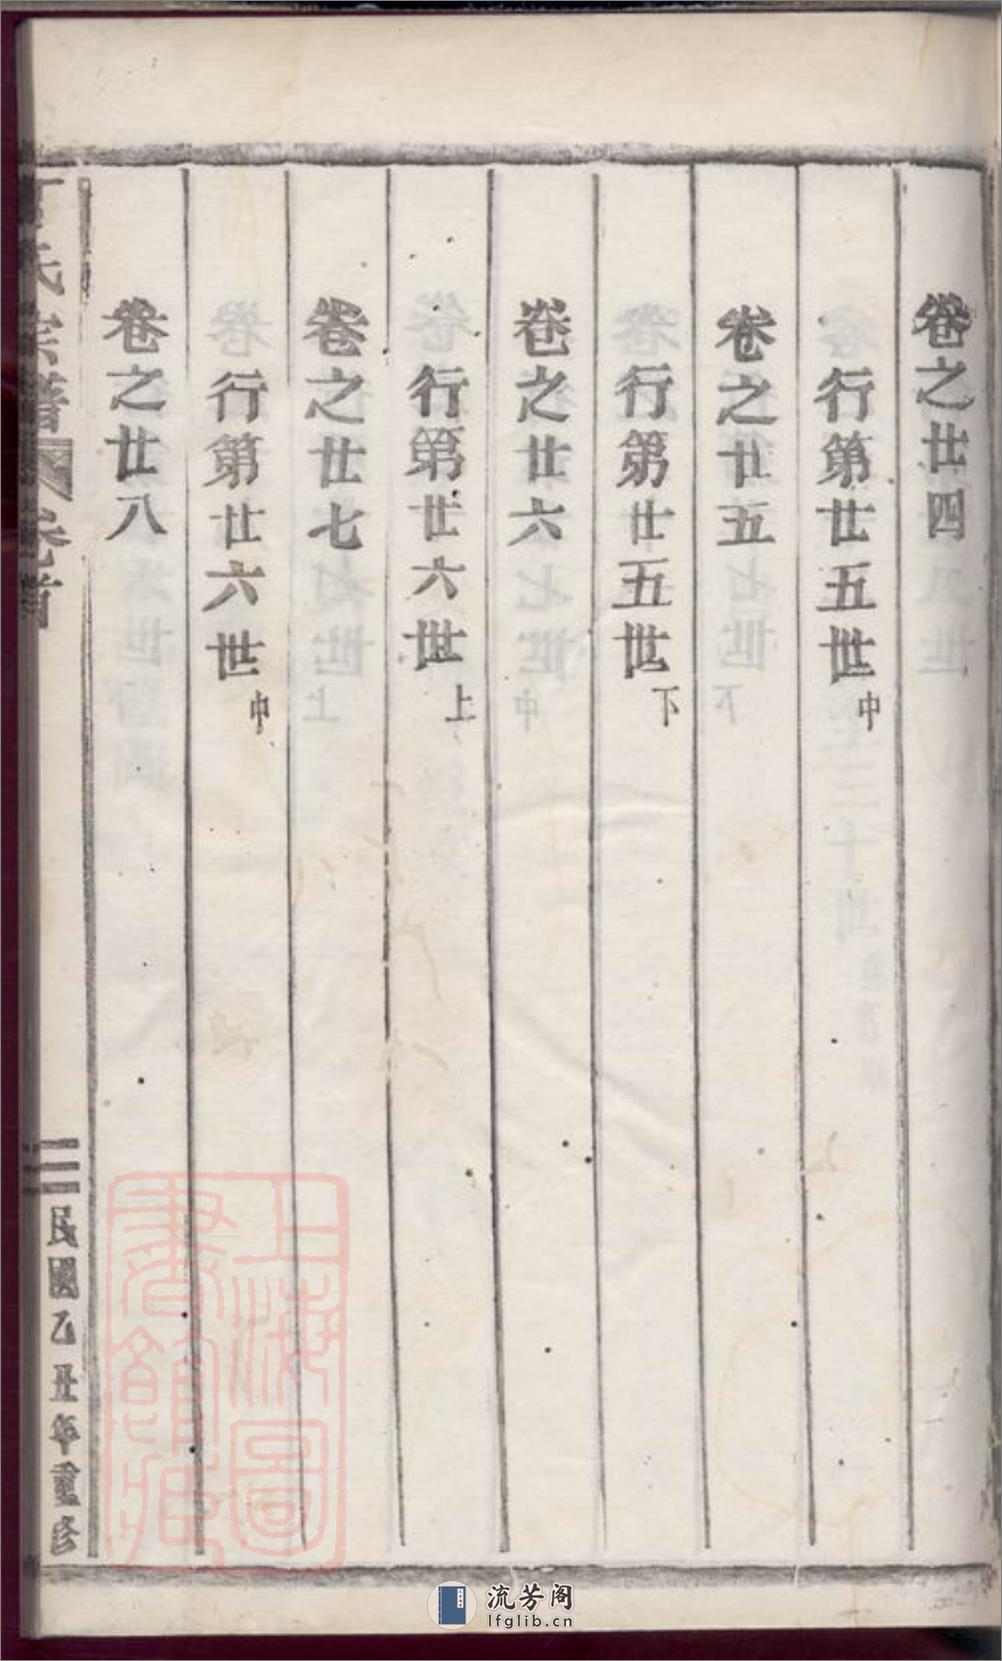 卷之廿四
行第廿五世中
卷之廿五
行第廿五世下
卷之廿六
行第廿六世上
卷之廿七
行第廿六世中
卷之廿八
氏宗譜
卷首
三
民國乙丑年重修
上海圖書館藏
流芳阁
lfglib.cn